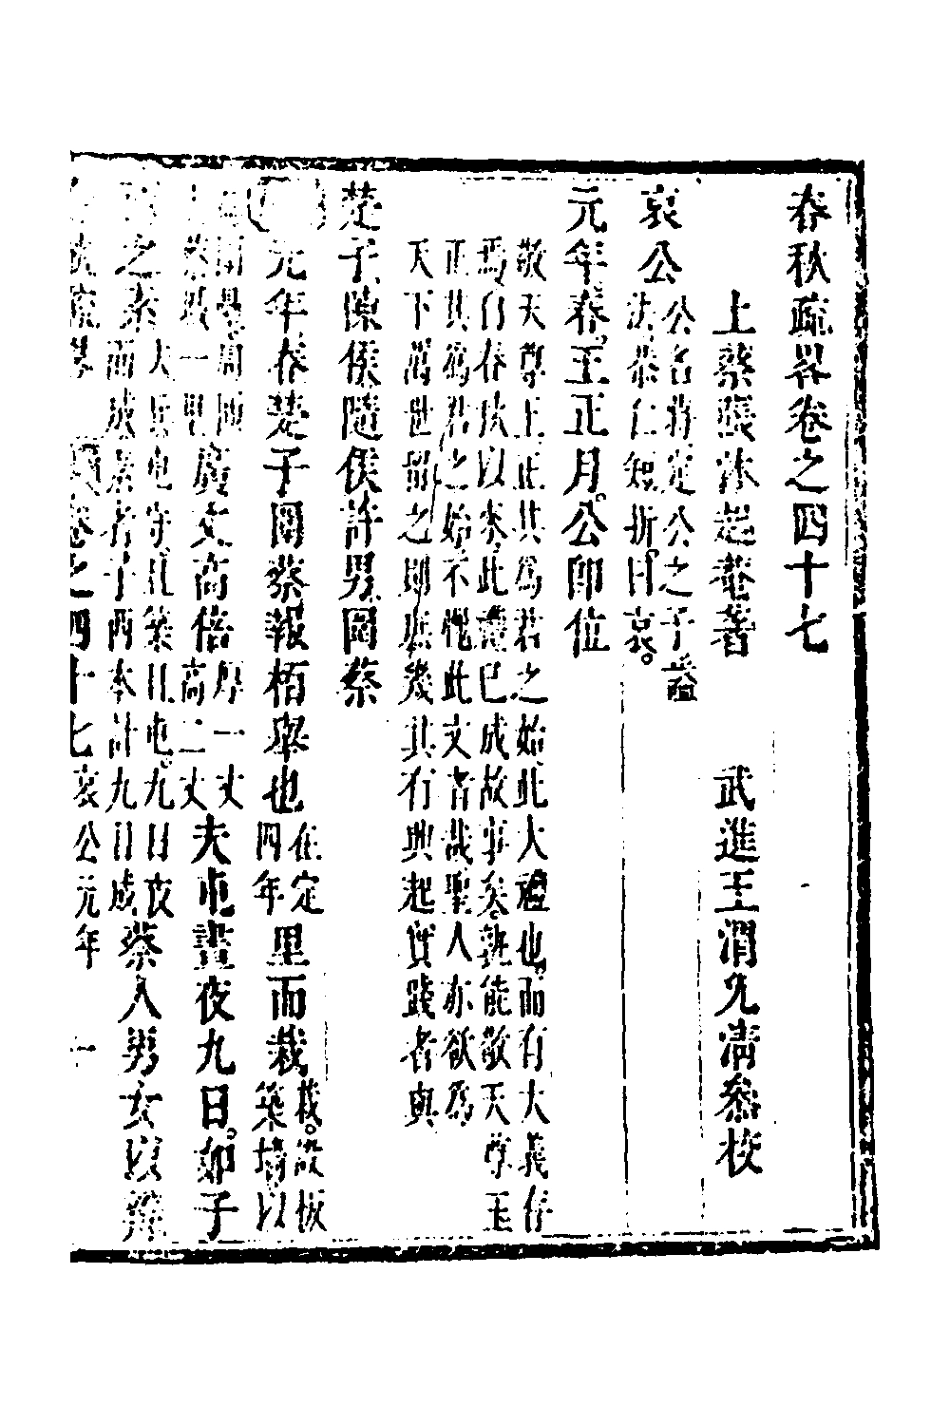 春秋疏畧卷之四十七
上蔡張沐起菴著　武進王渭允清叅校
哀公
公名蔣定公之子謚
法恭仁短折曰哀
元年春王正月公卽位
敬天尊王正其爲君之始此大禮也而有大義存
焉自春秋以來此禮已成故事矣孰能敬天尊王
正其爲君之始不愧此文者哉聖人亦欲爲
天下萬世留之則庶幾其有興起實踐者與
楚子陳侯隨侯許男圍蔡
元年春楚子圍蔡報栢舉也
在定
四年
里而栽
栽設板
築墻以
圍壘周帀
蔡城一里
廣丈高倍
厚一丈
高二丈
夫屯晝夜九日如子
之素
夫兵屯守且築且屯九日夜
而成素者子西本計九日成
蔡人男女以辨
卷之四十七哀公元年
一